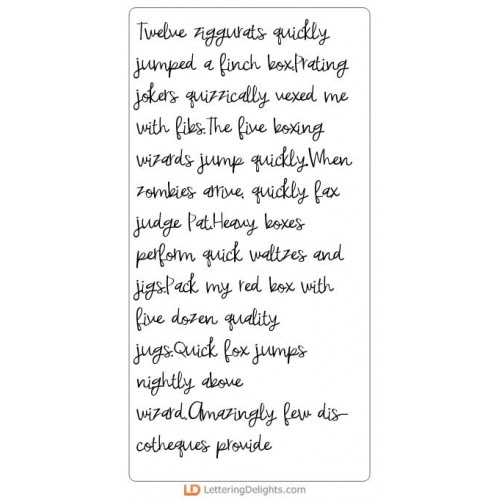 Twelve ziggurats quickly
jumped a finch box.Prating
jokers quizzically vexed me
with fibs.The five boxing
wizards jump quickly.When
zombies arrive, quickly fax
judge Pat.Heavy boxes
perform quick waltzes and
jigs.Pack my red box with
five dozen quality
jugs.Quick fox jumps
nightly above
wizard.Amazingly few dis-
cotheques provide
LD LetteringDelights.com